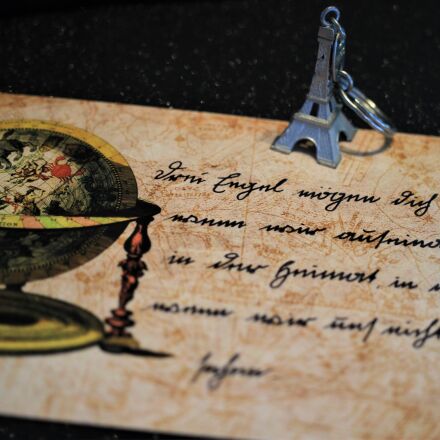 Drei Engel mögen Dich
wenn wir auseina
in der Heimat in
wenn wir uns nicht
sehen